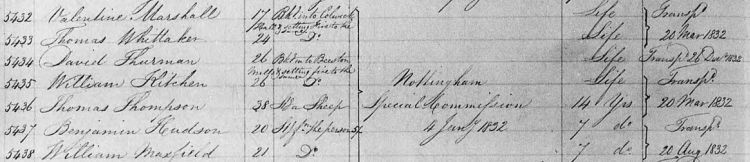 5432 Valentine Marshall 17 Bkg into Colwick Life Transpd.
Hall & setting fire to the
5433 Thomas Whittaker 24 Do. Life 20 Mar 1832
5434 David Thurman 26 Bkg into Beeston Life Transpd. 26 Dec. 1832
Mill & setting fire to the
5435 William Kitchen 26 Do. Nottingham Life Transpd.
5436 Thomas Thomhson 38 Sta Sheep Special Commission 14 Yrs 20 Mar 1832
5437 Benjamin Hudson 20 person 4 Jany. 1832 7 do. Transpd.
5438 William Maxfield 21 Do. 7 do. 20 Aug 1832